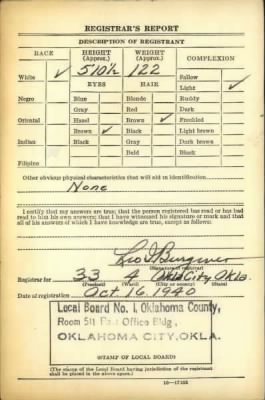 REGISTRAR'S REPORT
DESCRIPTION OF REGISTRANT
RACE HEIGHT (Approx.) WEIGHT (Approx.) COMPLEXION
White ✓ 5'10½ 122 Sallow
EYES HAIR Light ✓
Negro Blue Blonde Ruddy
Gray Red Dark
Oriental Hazel Brown ✓ Freckled
Brown ✓ Black Light brown
Indian Black Gray Dark brown
Bald Black
Filipino
Other obvious physical characteristics that will aid in identification
None
I certify that my answers are true; that the person registered has read or has had
read to him his own answers; that I have witnessed his signature or mark and that
all of his answers of which I have knowledge are true, except as follows:
(Signature of registrar)
Registrar for 33 4 Okla City, Okla.
(Precinct) (Ward) (City or county) (State)
Date of registration Oct. 16, 1940
Local Board No. 1, Oklahoma County,
Room 511 Post Office Bldg.,
OKLAHOMA CITY, OKLA.
(STAMP OF LOCAL BOARD)
(The stamp of the Local Board having jurisdiction of the registrant
shall be placed in the above space.)